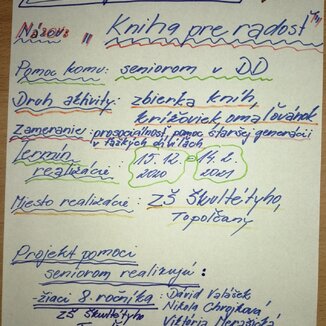 Názov: "Kniha pre radosť"
Pomoc komu: seniorom v DD
Druh aktivity: zbierka kníh,
krížoviek, omaľovánok
Zameranie: prosociálnosť, pomoc staršej generácii
v ťažkých chvíľach
Termín
realizácie: 15.12. - 14.2.
2020 2021
Miesto realizácie: ZŠ Škultétyho,
Topoľčany
Projekt pomoci
seniorom realizujú:
- žiaci 8. ročníka: Dávid Valášek
ZŠ Škultétyho Nikola Chrojková
Viktória